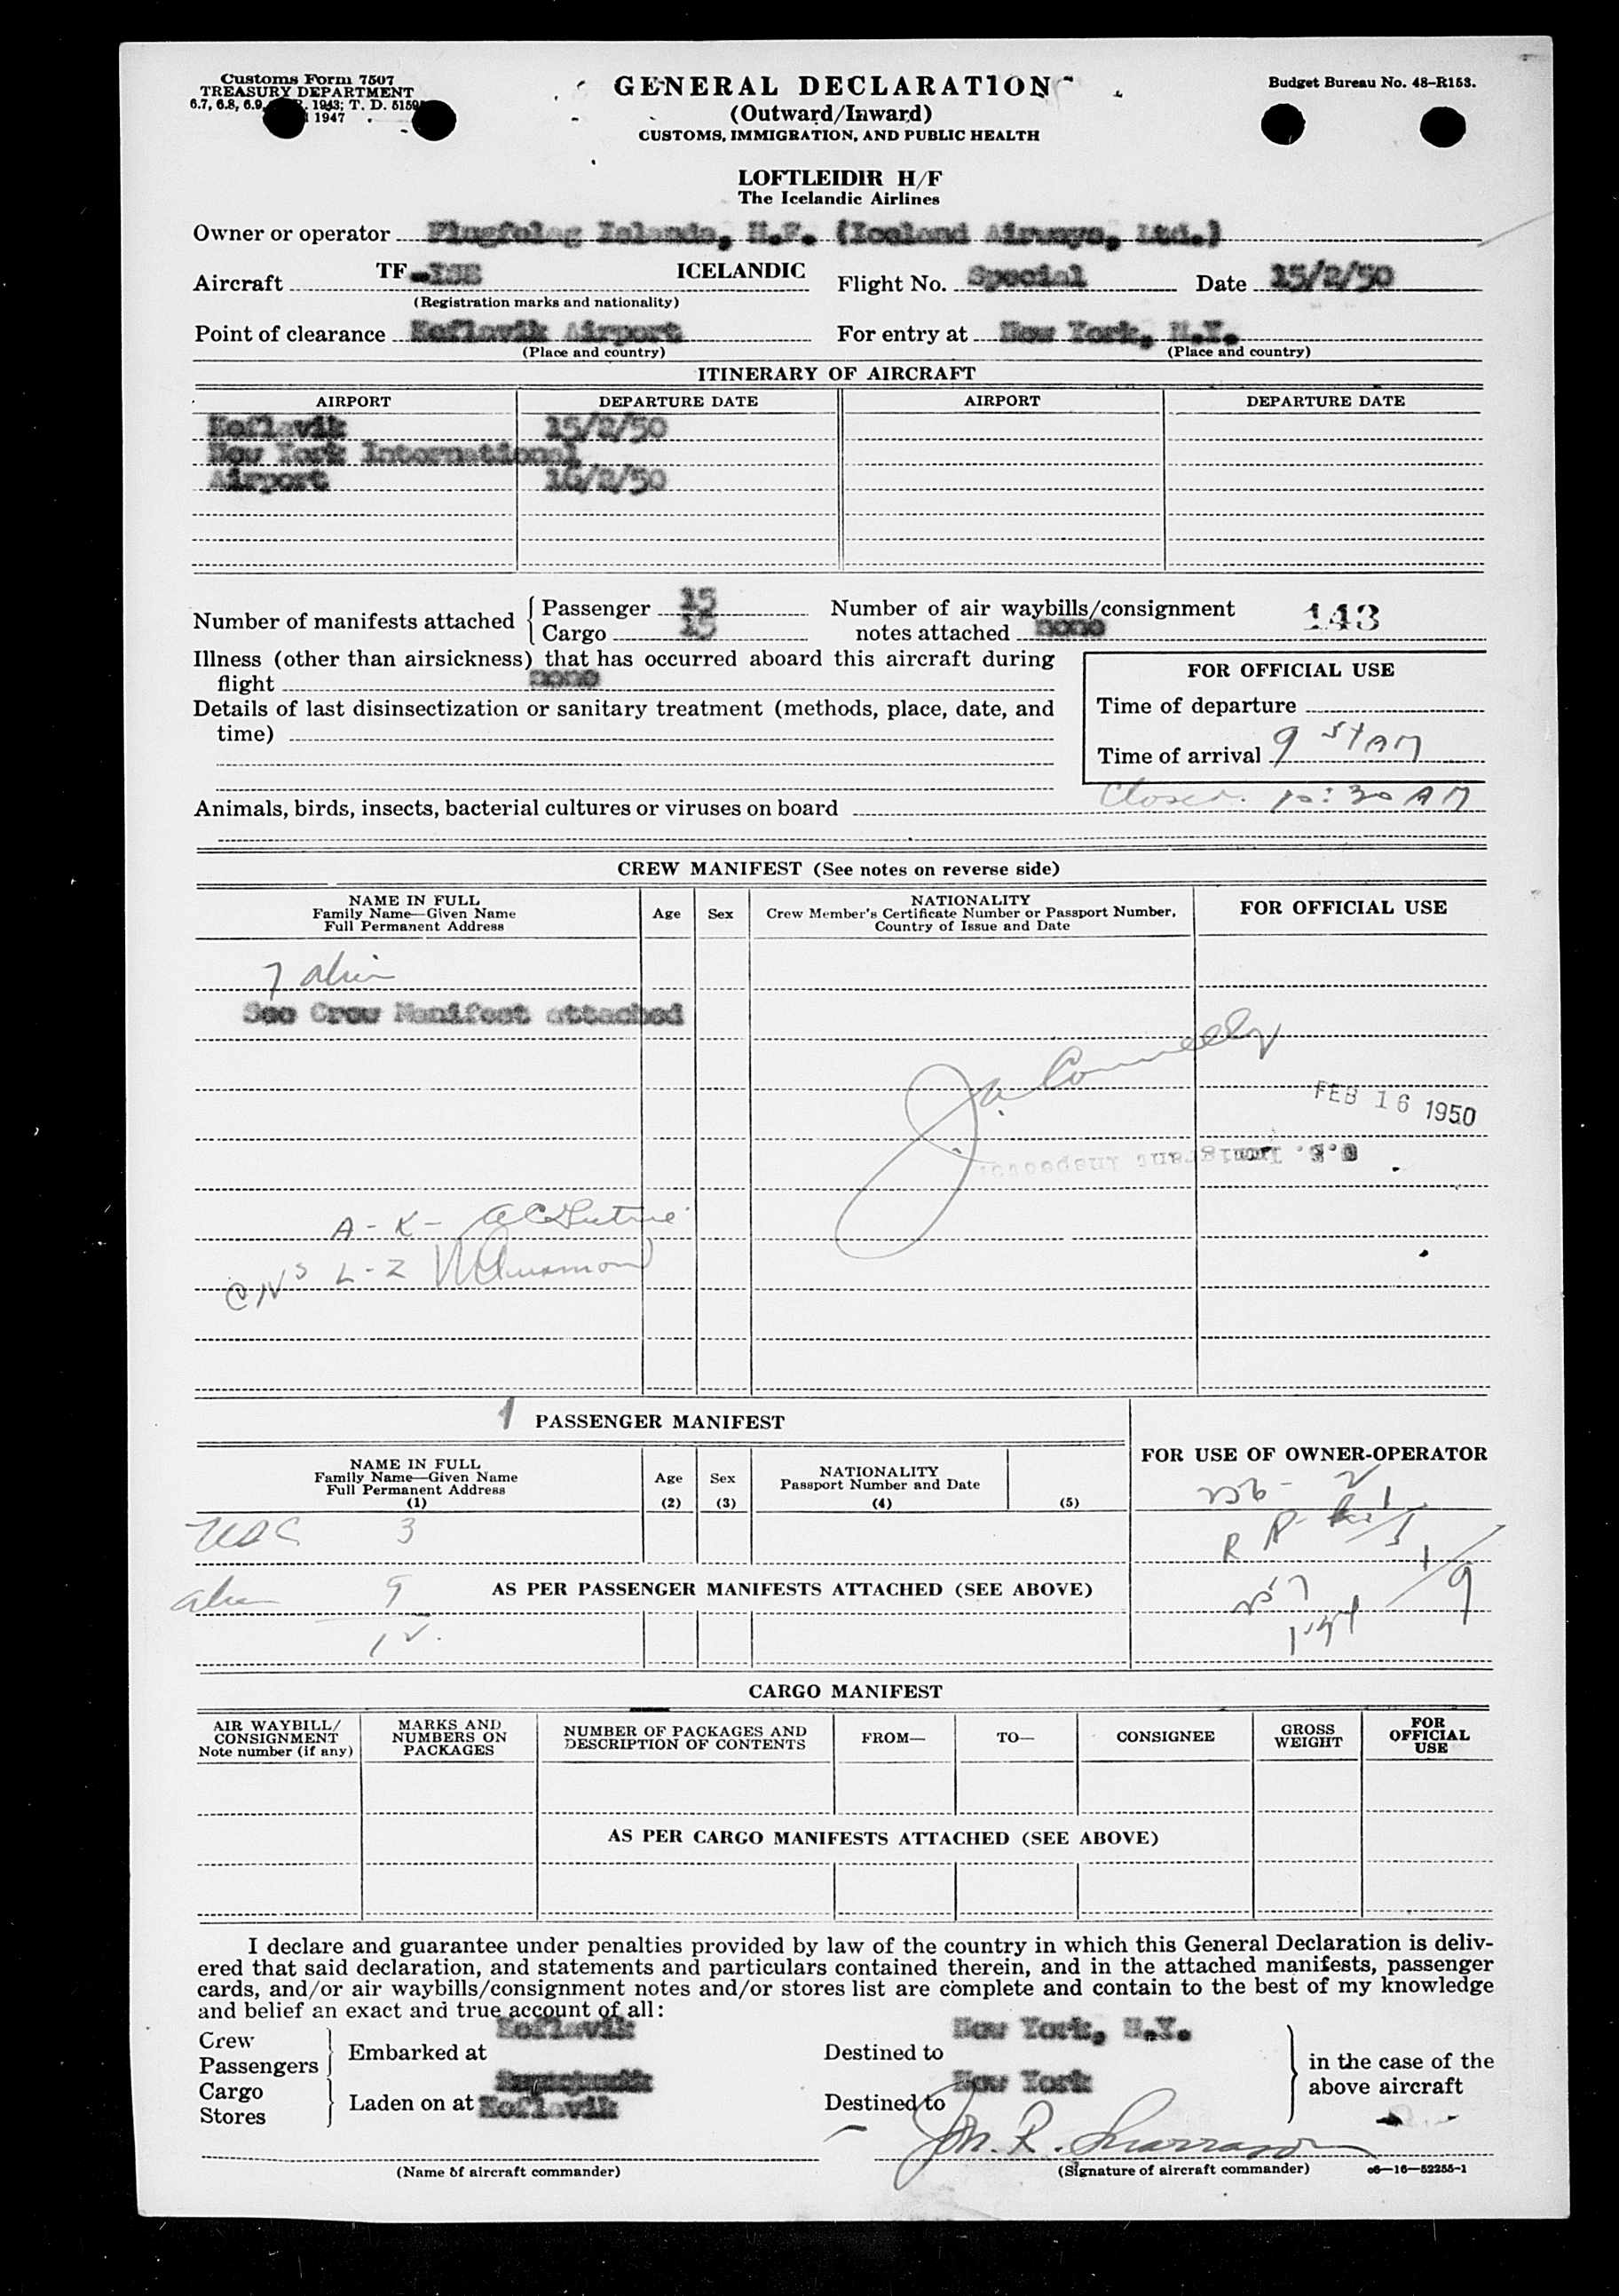 Customs Form 7507
TREASURY DEPARTMENT
6.7, 6.8, 6.9, 1943; T. D. 5159
1947
GENERAL DECLARATION
(Outward/Inward)
CUSTOMS, IMMIGRATION, AND PUBLIC HEALTH
Budget Bureau No. 48-R153.
LOFTLEIDIR H/F
The Icelandic Airlines
Owner or operator Flugfelag Islands, H.F. (Iceland Airways, Ltd.)
Aircraft TF ICELANDIC Flight No. Special Date 15/2/50
(Registration marks and nationality)
Point of clearance Keflavik Airport For entry at New York, N.Y.
(Place and country) (Place and country)
ITINERARY OF AIRCRAFT
AIRPORT DEPARTURE DATE AIRPORT DEPARTURE DATE
Keflavik 15/2/50
New York International
Airport 16/2/50
Number of manifests attached { Passenger 15 Number of air waybills/consignment 143
Cargo 15 notes attached none
Illness (other than airsickness) that has occurred aboard this aircraft during
flight none
FOR OFFICIAL USE
Details of last disinsectization or sanitary treatment (methods, place, date, and
time)
Time of departure
Time of arrival 9 51 AM
Closed 10:30 AM
Animals, birds, insects, bacterial cultures or viruses on board
CREW MANIFEST (See notes on reverse side)
NAME IN FULL
Family Name—Given Name
Full Permanent Address
Age Sex
NATIONALITY
Crew Member's Certificate Number or Passport Number,
Country of Issue and Date
FOR OFFICIAL USE
7 alien
See Crew Manifest attached
J. A. Connelly
FEB 16 1950
U.S. Immigrant Inspector
A - K -
L - Z
1 PASSENGER MANIFEST
FOR USE OF OWNER-OPERATOR
NAME IN FULL
Family Name—Given Name
Full Permanent Address
(1)
Age
(2)
Sex
(3)
NATIONALITY
Passport Number and Date
(4)
(5)
USC 3
alien 9 AS PER PASSENGER MANIFESTS ATTACHED (SEE ABOVE)
12
CARGO MANIFEST
AIR WAYBILL/
CONSIGNMENT
Note number (if any)
MARKS AND
NUMBERS ON
PACKAGES
NUMBER OF PACKAGES AND
DESCRIPTION OF CONTENTS
FROM— TO— CONSIGNEE
GROSS
WEIGHT
FOR
OFFICIAL
USE
AS PER CARGO MANIFESTS ATTACHED (SEE ABOVE)
I declare and guarantee under penalties provided by law of the country in which this General Declaration is deliv-
ered that said declaration, and statements and particulars contained therein, and in the attached manifests, passenger
cards, and/or air waybills/consignment notes and/or stores list are complete and contain to the best of my knowledge
and belief an exact and true account of all:
Crew Keflavik New York, N.Y.
Passengers } Embarked at Destined to } in the case of the
Cargo New York above aircraft
Stores } Laden on at Keflavik Destined to
Jón. R. Snorrason
(Name of aircraft commander) (Signature of aircraft commander) c6—16—52255-1